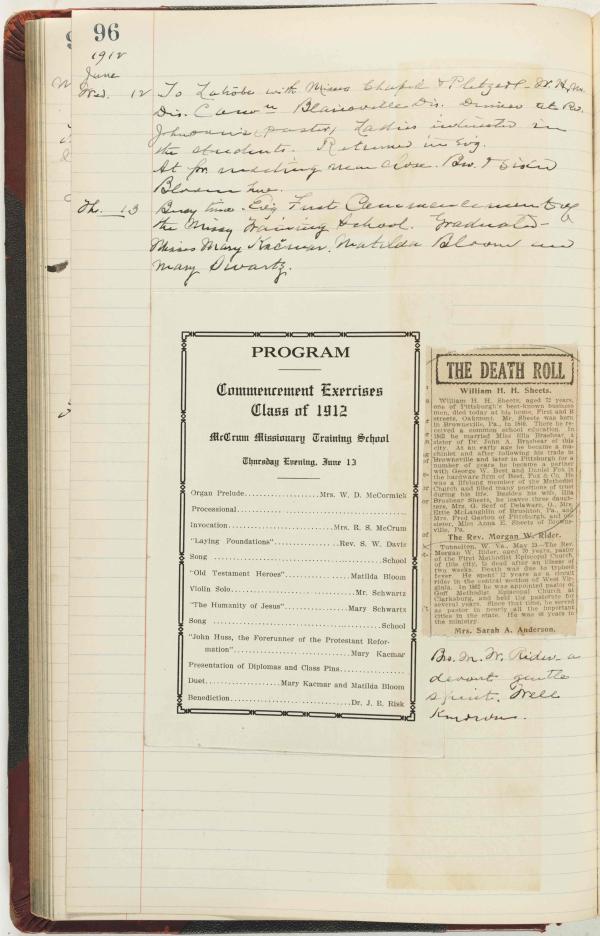 96
1912
June
Wed. 12 To Latrobe with Misses
Dis. Blairsville Dis. Dinner at Rev.
(pastor) Ladies interested in
the students. Returned in Evg.
At for. meeting near close. Bro. & Sister
Bloom here.
Th. 13 Busy time. Evg First Commencement of
the Missy Training School. Graduates-
Misses Mary Kačmar, Matilda Bloom and
Mary Swartz.
PROGRAM
Commencement Exercises
Class of 1912
McCrum Missionary Training School
Thursday Evening, June 13
Organ Prelude Mrs. W. D. McCormick
Processional
Invocation Mrs. R. S. McCrum
"Laying Foundations" Rev. S. W. Davis
Song School
"Old Testament Heroes" Matilda Bloom
Violin Solo Mr. Schwartz
"The Humanity of Jesus" Mary Schwartz
Song School
"John Huss, the Forerunner of the Protestant Refor-
mation" Mary Kacmar
Presentation of Diplomas and Class Pins
Duet Mary Kacmar and Matilda Bloom
Benediction Dr. J. B. Risk
THE DEATH ROLL
William H. H. Sheets.
William H. H. Sheets, aged 72 years,
one of Pittsburgh's best-known business
men, died today at his home, First and B
streets, Oakmont. Mr. Sheets was born
in Brownsville, Pa., in 1840. There he re-
ceived a common school education. In
1862 he married Miss Illa Brashear, a
sister of Dr. John A. Brashear of this
city. At an early age he became a ma-
chinist and after following his trade in
Brownsville and later in Pittsburgh for a
number of years he became a partner
with George W. Best and Daniel Fox in
the hardware firm of Best, Fox & Co. He
was a lifelong member of the Methodist
Church and filled many positions of trust
during his life. Besides his wife, Illa
Brashear Sheets, he leaves three daugh-
ters, Mrs. G. Seof of Delaware, O., Mrs.
Ettie McLaughlin of Brushton, Pa., and
Mrs. Fred Gaston of Pittsburgh, and one
sister, Miss Anna E. Sheets of Browns-
ville, Pa.
The Rev. Morgan W. Rider.
Tunnelton, W. Va., May 23.—The Rev.
Morgan W. Rider, aged 70 years, pastor
of the First Methodist Episcopal Church,
of this city, is dead after an illness of
two weeks. Death was due to typhoid
fever. He spent 12 years as a circuit
rider in the central section of West Vir-
ginia. In 1882 he was appointed pastor of
Goff Methodist Episcopal Church at
Clarksburg, and held the pastorate for
several years. Since that time, he served
as pastor in nearly all the important
cities in the state. He was 48 years in
the ministry.
Mrs. Sarah A. Anderson.
Bro. M. W. Rider- a
devout gentle
spirit. Well
known.